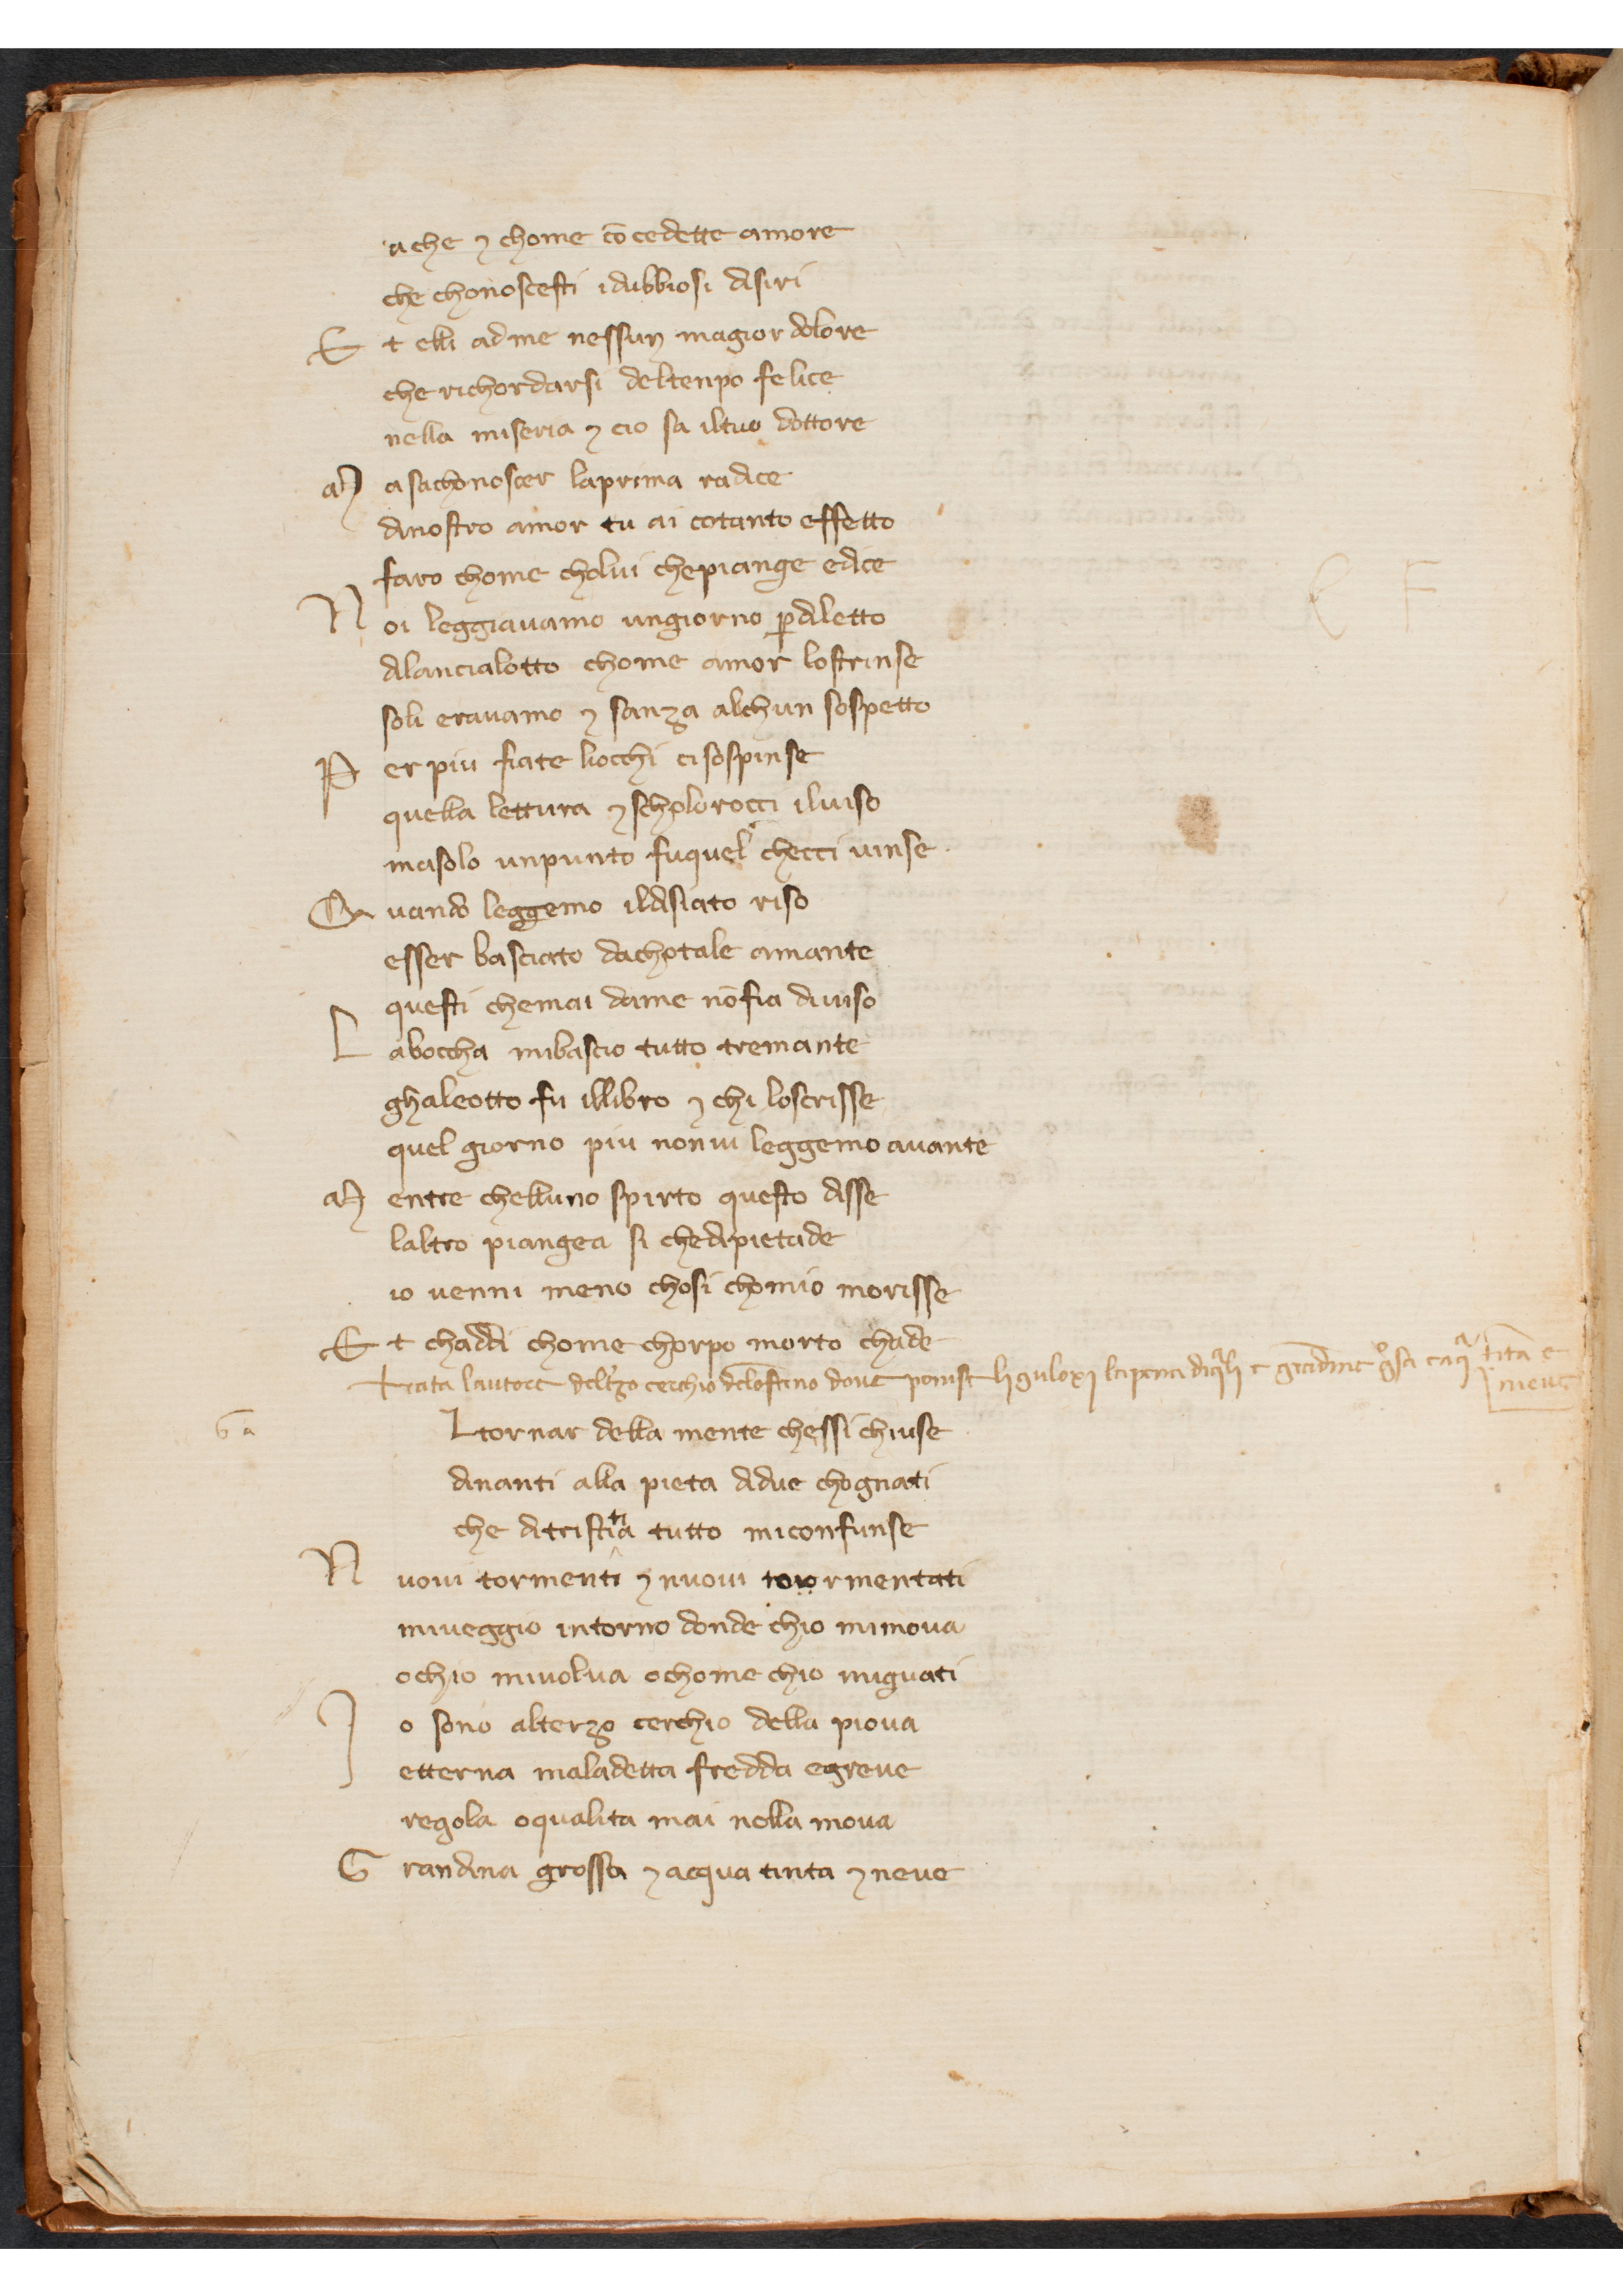 ache ⁊ chome cōcedette amore
che chonoscesti idubbiosi disiri
E t elli adme nessun magior dolore
che richordarsi deltenpo felice
nella miseria ⁊ cio sa iltuo dottore
M asachonoscer laprima radice
dinostro amor tu ai cotanto effetto
faro chome cholui chepiange edice
N oi leggiavamo ungiorno ꝑdiletto
dilancialotto chome amor lostrinse
soli eravamo ⁊ sanza alchun sospetto
P er piu fiate liocchi ci sospinse
quella lettura ⁊ scholorocci ilviso
masolo unpunto fuquel checci vinse
Q uando leggemo ildisiato riso
esser basciato dachotale amante
questi chemai dame nōfia diviso
L aboccha mibascio tutto tremante
ghaleotto fu illibro ⁊ chi loscrisse
quel giorno piu nonvi leggemo avante
M entre chelluno spirto questo disse
laltro piangea si chedipietade
io venni meno chosi chomio morisse
E t chaddi chome chorpo morto chade
trata lautore cerchio dove
6a
L tornar della mente chessi chiuse
dinanti alla pieta didue chognati
che ditristitia tutto miconfunse
N uovi tormenti ⁊ nuovi tormentati
miveggio intorno donde chio mimova
ochio mivolva ochome chio miguati
I o sono alterzo cerchio della piova
etterna maladetta fredda egreve
regola oqualita mai nolla mova
G randina grossa ⁊ acqua tinta ⁊ neve